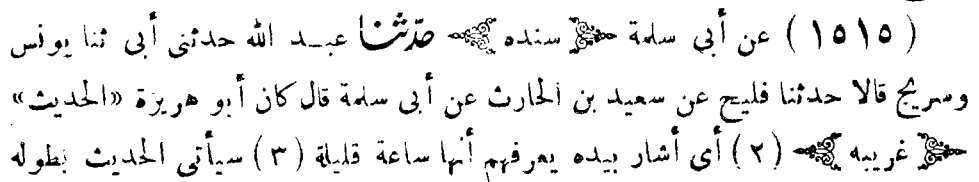 (١٥١٥) عن أبي سلمة ﴿ سنده ﴾ حدّثنا عبد الله حدثنى أبى ثنا يونس
وسريج قالا حدثنا فليح عن سعيد بن الحارث عن أبى سلمة قال كان أبو هريزة «الحديث»
﴿ غريبه ﴾ (٢) أى أشار بيده يعرفهم أنها ساعة قليلة (٣) سيأتى الحديث بطوله